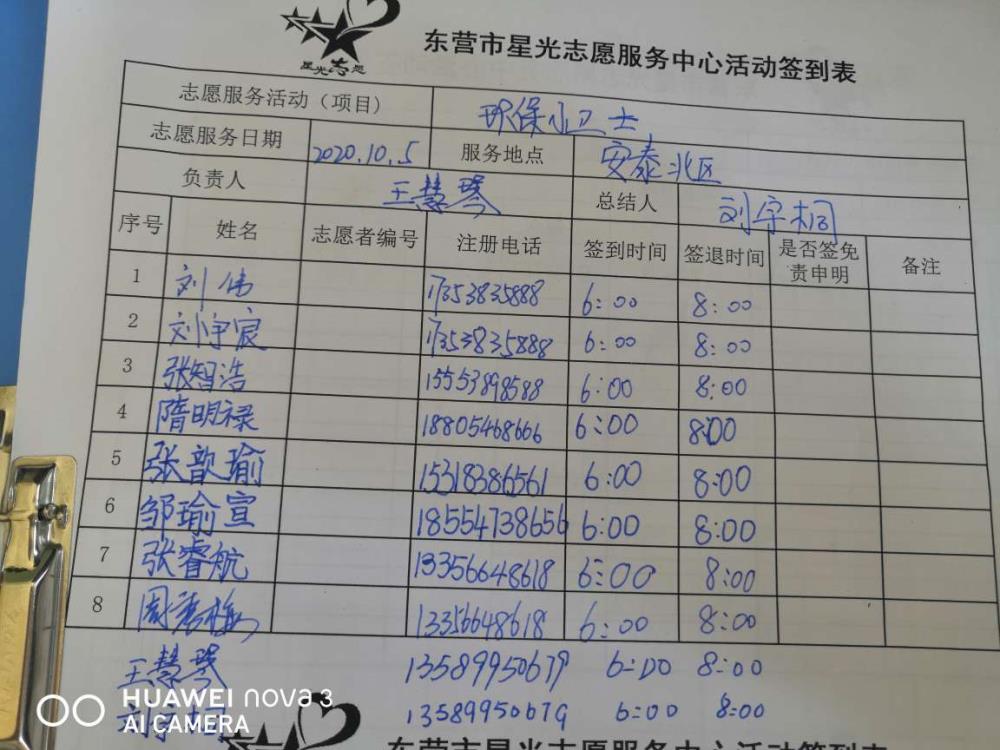 星光志愿
东营市星光志愿服务中心活动签到表
志愿服务活动（项目） 环保小卫士
志愿服务日期 2020.10.5 服务地点 安泰北区
负责人 王慧琴 总结人 刘宇桐
序号 姓名 志愿者编号 注册电话 签到时间 签退时间 是否签免责申明 备注
1 刘伟 17353835888 6:00 8:00
2 刘宇宸 17353835888 6:00 8:00
3 张智浩 15553898588 6:00 8:00
4 隋明禄 18805468666 6:00 8:00
5 张歆瑜 15318386561 6:00 8:00
6 邹瑜宣 18554738656 6:00 8:00
7 张睿航 13356648618 6:00 8:00
8 周 梅 13356648618 6:00 8:00
王慧琴 13589950679 6:00 8:00
刘宇桐 13589950679 6:00 8:00
HUAWEI nova 3
AI CAMERA
东营市星光志愿服务中心活动签到表